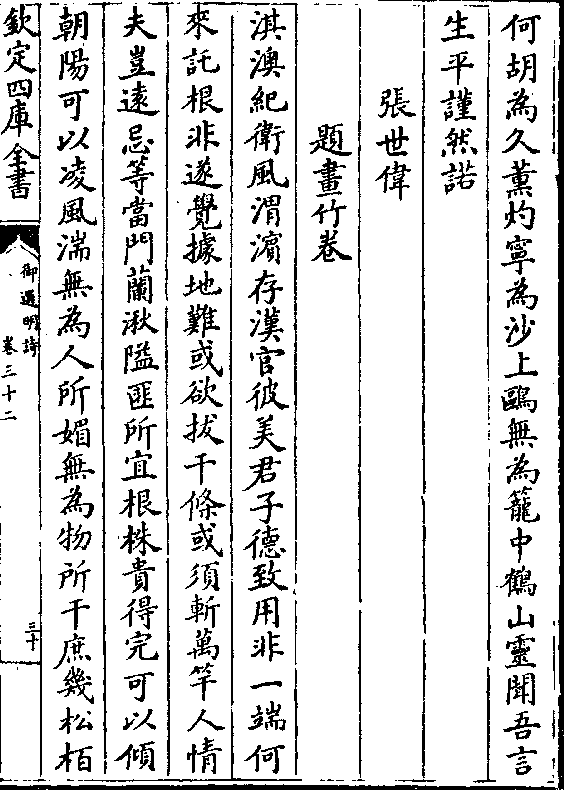 何胡為久薰灼寧為沙上鷗無為籠中鶴山靈聞吾言
生平謹然諾
張世偉
題畫竹卷
淇澳紀衛風渭濱存漢官彼美君子德致用非一端何
來託根非遂覺據地難或欲拔千條或須斬萬竿人情
夫豈遠忌等當門蘭湫隘匪所宜根株貴得完可以傾
朝陽可以凌風湍無為人所媚無為物所干庶幾松栢
欽定四庫全書
御選明詩
卷三十二
三十